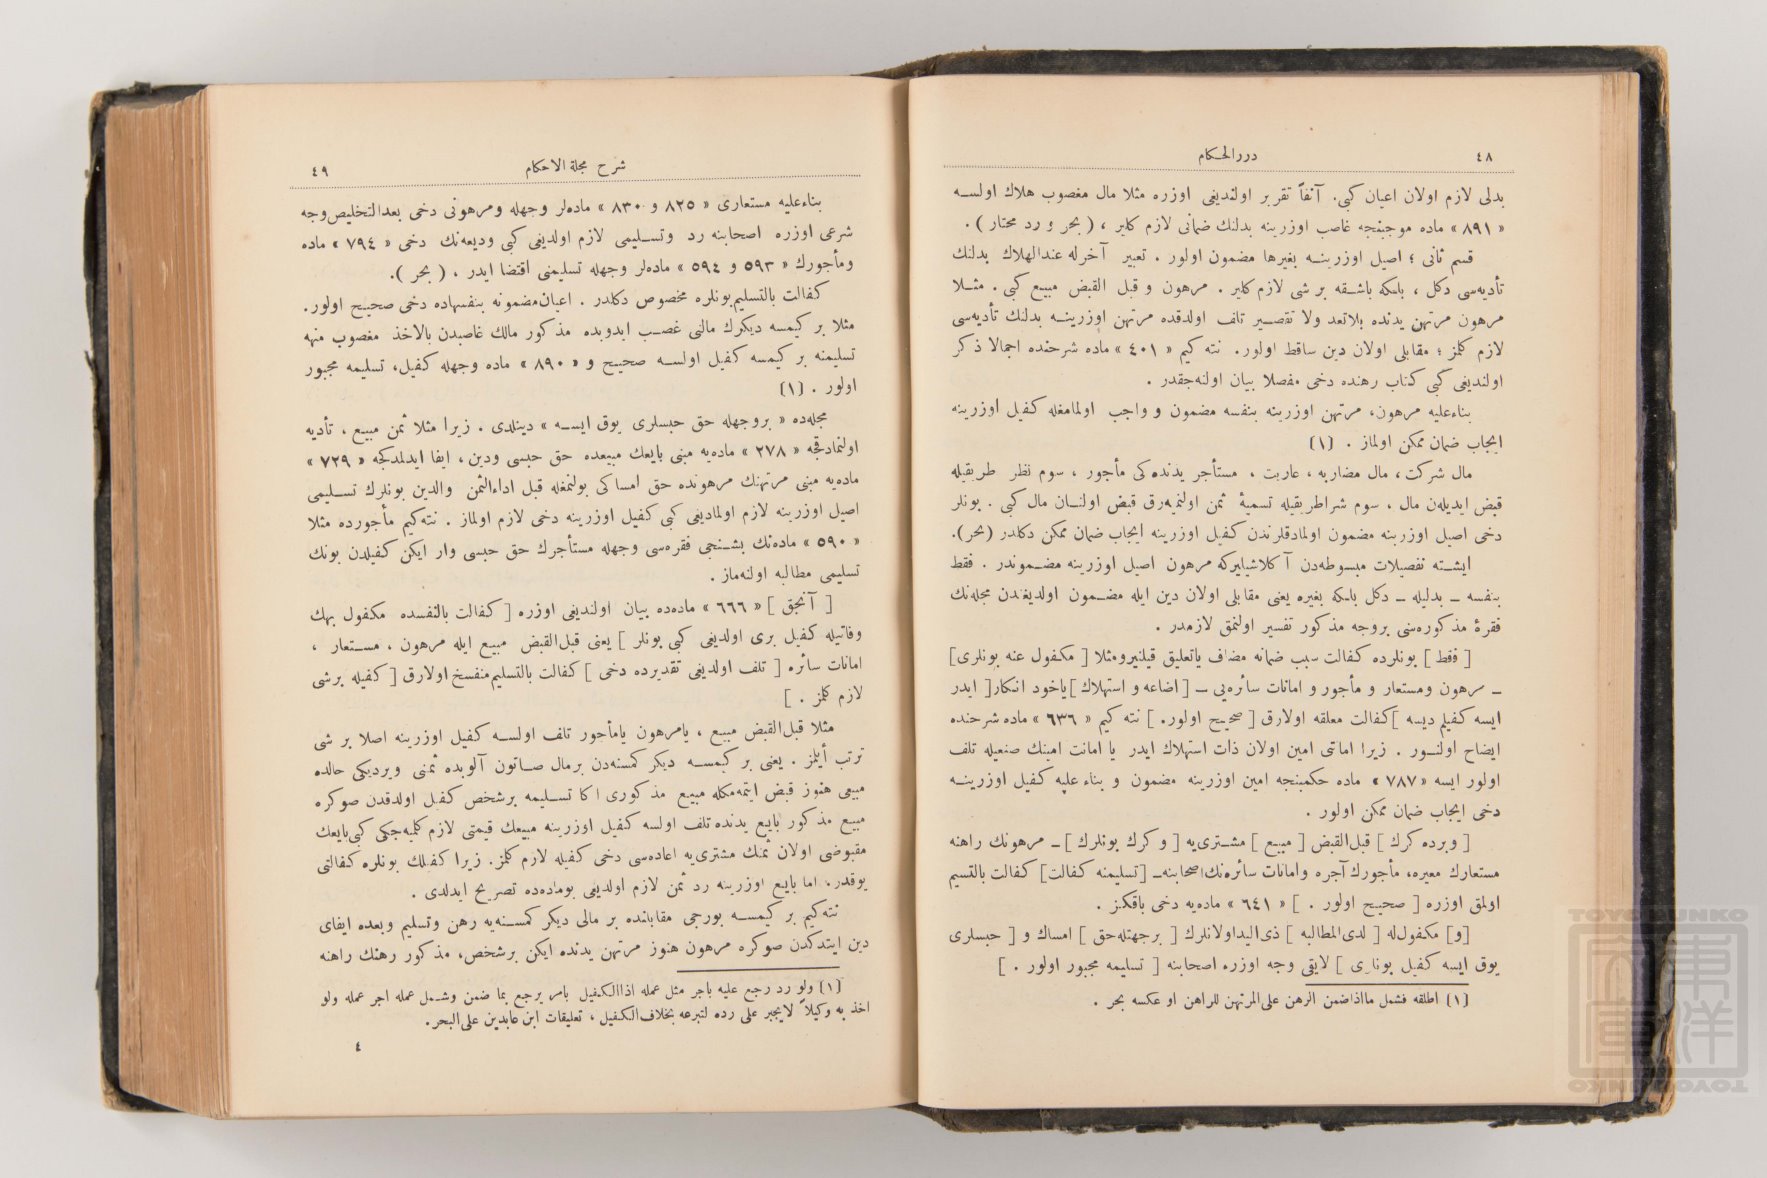 ٤٨
دررالحكام
بدلى لازم اولان اعيان كبى. آنفاً تقرير اولنديغى اوزره مثلا مال مغصوب هلاك اولسه
« ٨٩١ » ماده موجبنجه غاصب اوزرينه بدلنك ضمانى لازم كلير ، ( بحر و رد محتار ) .
قسم ثانى ؛ اصيل اوزرينه بغيرها مضمون اولور . تعبير آخرله عندالهلاك بدلنك
تأديه‌سى دكل ، بلكه باشقه بر شى لازم كلير . مرهون و قبل القبض مبيع كبى . مثلا
مرهون مرتهن يدنده بلاتعد ولا تقصير تلف اولدقده مرتهن اوزرينه بدلنك تأديه‌سى
لازم كلمز ؛ مقابلى اولان دين ساقط اولور. نته كيم « ٤٠١ » ماده شرحنده اجمالا ذكر
اولنديغى كبى كتاب رهنده دخى مفصلا بيان اولنه‌جقدر .
بناءعليه مرهون، مرتهن اوزرينه بنفسه مضمون و واجب اولمامغله كفيل اوزرينه
ايجاب ضمان ممكن اولماز . (١)
مال شركت، مال مضاربه ، عاريت ، مستأجر يدنده‌كى مأجور ، سوم نظر طريقيله
قبض ايديلن مال ، سوم شراطريقيله تسميۀ ثمن اولنميه‌رق قبض اولنان مال كبى . بونلر
دخى اصيل اوزرينه مضمون اولمادقلرندن كفيل اوزرينه ايجاب ضمان ممكن دكلدر (بحر).
ايشته تفصيلات مبسوطه‌دن آكلاشيليركه مرهون اصيل اوزرينه مضموندر . فقط
بنفسه ـ بدليله ـ دكل بلكه بغيره يعنى مقابلى اولان دين ايله مضمون اولديغندن مجله‌نك
فقرۀ مذكوره‌سى بروجه مذكور تفسير اولنمق لازمدر .
[ فقط ] بونلرده كفالت سبب ضمانه مضاف ياتعليق قيلنيرومثلا [ مكفول عنه بونلرى]
ـ مرهون ومستعار و مأجور و امانات سائره‌يى ـ [ اضاعه و استهلاك ]ياخود انكار[ ايدر
ايسه كفيلم ديسه ]كفالت معلقه اولارق [ صحيح اولور. ] نته كيم « ٦٣٦ » ماده شرحنده
ايضاح اولنور . زيرا امانتى امين اولان ذات استهلاك ايدر يا امانت امينك صنعيله تلف
اولور ايسه « ٧٨٧ » ماده حكمنجه امين اوزرينه مضمون و بناء عليه كفيل اوزرينه
دخى ايجاب ضمان ممكن اولور .
[ وبرده كرك ] قبل‌القبض [ مبيع ] مشترى‌يه [ و كرك بونلرك ] ـ مرهونك راهنه
مستعارك معيره، مأجورك آجره وامانات سائره‌نك اصحابنه ـ [تسليمنه كفالت] كفالت بالتسيم
اولمق اوزره [ صحيح اولور . ] « ٦٤١ » ماده‌يه دخى باقكز .
[و] مكفول‌له [ لدى‌المطالبه ] ذى‌اليداولانلرك [ برجهتله‌حق ] امساك و [ حبسلرى
يوق ايسه كفيل بونلرى ] لايقى وجه اوزره اصحابنه [ تسليمه مجبور اولور . ]
(١) اطلقه فشمل مااذاضمن الرهن على‌المرتهن للراهن او عكسه بحر .
شرح مجلةالاحكام
٤٩
بناءعليه مستعارى « ٨٢٥ و ٨٣٠ » ماده‌لر وجهله ومرهونى دخى بعدالتخليص‌وجه
شرعى اوزره اصحابنه رد وتسليمى لازم اولديغى كبى وديعه‌نك دخى « ٧٩٤ » ماده
ومأجورك « ٥٩٣ و ٥٩٤ » ماده‌لر وجهله تسليمنى اقتضا ايدر ، ( بحر ).
كفالت بالتسليم‌بونلره مخصوص دكلدر . اعيان‌مضمونه بنفسهاده دخى صحيح اولور.
مثلا بر كيمسه ديكرك مالنى غصب ايدوبده مذكور مالك غاصبدن بالاخذ مغصوب منه
تسليمنه بر كيمسه كفيل اولسه صحيح و « ٨٩٠ » ماده وجهله كفيل، تسليمه مجبور
اولور . (١)
مجله‌ده « بروجهله حق حبسلرى يوق ايسه » دينلدى . زيرا مثلا ثمن مبيع ، تأديه
اولنمادقجه « ٢٧٨ » ماده‌يه مبنى بايعك مبيعده حق حبسى ودين ، ايفا ايدلمدكجه « ٧٢٩ »
ماده‌يه مبنى مرتهنك مرهونده حق امساكى بولنمغله قبل اداءالثمن والدين بونلرك تسليمى
اصيل اوزرينه لازم اولماديغى كبى كفيل اوزرينه دخى لازم اولماز . نته‌كيم مأجورده مثلا
« ٥٩٠ » ماده‌نك بشنجى فقره‌سى وجهله مستأجرك حق حبسى وار ايكن كفيلدن بونك
تسليمى مطالبه اولنه‌ماز .
[ آنجق ] « ٦٦٦ » ماده‌ده بيان اولنديغى اوزره [ كفالت بالنفسده مكفول بهك
وفاتيله كفيل برى اولديغى كبى بونلر ] يعنى قبل‌القبض مبيع ايله مرهون ، مستعار ،
امانات سائره [ تلف اولديغى تقديرده دخى ] كفالت بالتسليم‌منفسخ اولارق [ كفيله برشى
لازم كلمز . ]
مثلا قبل‌القبض مبيع ، يامرهون يامأجور تلف اولسه كفيل اوزرينه اصلا بر شى
ترتب أيلمز . يعنى بر كيمسه ديكر كمسنه‌دن برمال صاتون آلوبده ثمنى ويرديكى حالده
مبيعى هنوز قبض ايتمه‌مكله مبيع مذكورى اكا تسليمه برشخص كفيل اولدقدن صوكره
مبيع مذكور بايع يدنده تلف اولسه كفيل اوزرينه مبيعك قيمتى لازم كلميه‌جكى كبى‌بايعك
مقبوضى اولان ثمنك مشترى‌يه اعاده‌سى دخى كفيله لازم كلمز. زيرا كفيلك بونلره كفالتى
يوقدر. اما بايع اوزرينه رد ثمن لازم اولديغى بوماده‌ده تصريح ايدلدى .
نته‌كيم بر كيمسه بورجى مقابلنده بر مالى ديكر كمسنه‌يه رهن وتسليم وبعده ايفاى
دين ايتدكدن صوكره مرهون هنوز مرتهن يدنده ايكن برشخص، مذكور رهنك راهنه
(١) ولو رد رجع عليه باجر مثل عمله اذاالكفيل بامر يرجع بما ضمن وشمل عمله اجر عمله ولو
اخذ به وكيلاً لايجبر على رده لتبرعه بخلاف‌الكفيل ، تعليقات ابن عابدين على‌البحر.
٤
TOYO BUNKO
東洋文庫
TOYO BUNKO